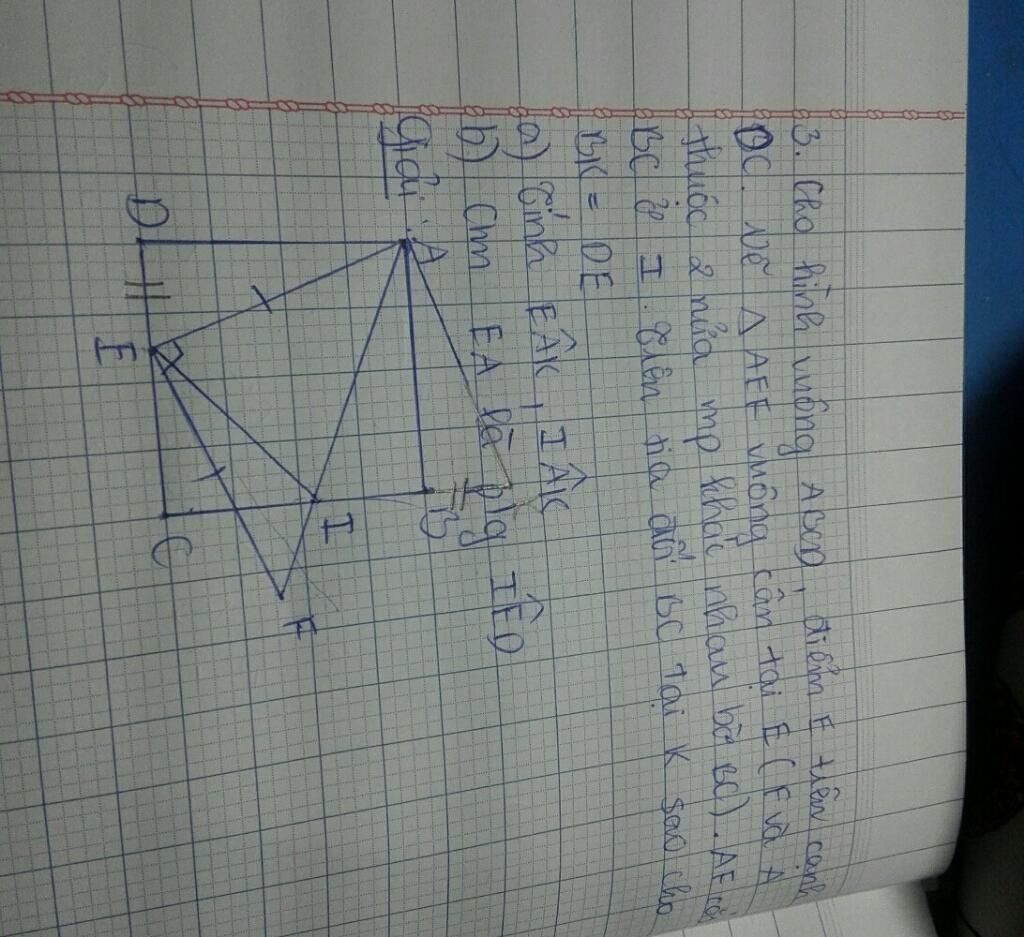 3. Cho hình vuông ABCD, điểm E trên cạnh
DC. Vẽ Δ AEF vuông cân tại E (F và A
thuộc 2 nửa mp khác nhau bờ BC). AF cắt
BC ở I. Trên tia đối BC tại K sao cho
BK = DE
a) Tính EÂK, IÂK
b) Cm EA là p/g IÊD
Giải:
A
B
D
E
C
I
F